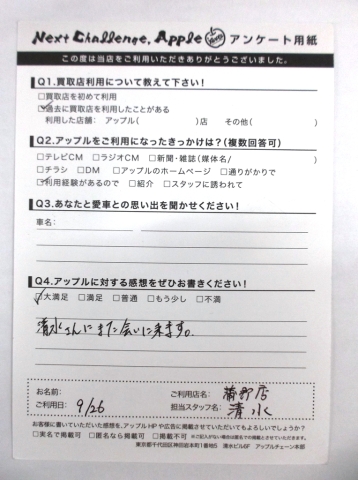 Next Challenge. Apple アンケート用紙
この度は当店をご利用いただきありがとうございました。
Q1.買取店利用について教えて下さい!
□買取店を初めて利用
☑過去に買取店を利用したことがある
利用した店舗: アップル( )店 その他( )
Q2.アップルをご利用になったきっかけは?(複数回答可)
□テレビCM □ラジオCM □新聞・雑誌(媒体名/ )
□チラシ □DM □アップルのホームページ □通りがかりで
☑利用経験があるので □紹介 □スタッフに誘われて
Q3.あなたと愛車との思い出を聞かせください!
車名:
Q4.アップルに対する感想をぜひお書きください!
☑大満足 □満足 □普通 □もう少し □不満
清水さんにまた会いに来ます。
お名前: ご利用店名: 蒲郡店
ご利用日: 9/26 担当スタッフ名: 清水
お客様に書いていただいた感想を、アップルHPや広告に掲載させていただいてもよろしいでしょうか?
□実名で掲載可 □匿名なら掲載可 □掲載不可 ※ご記入がない場合は匿名での掲載とさせていただきます。
東京都千代田区神田岩本町1番地5 清水ビル6F アップルチェーン本部